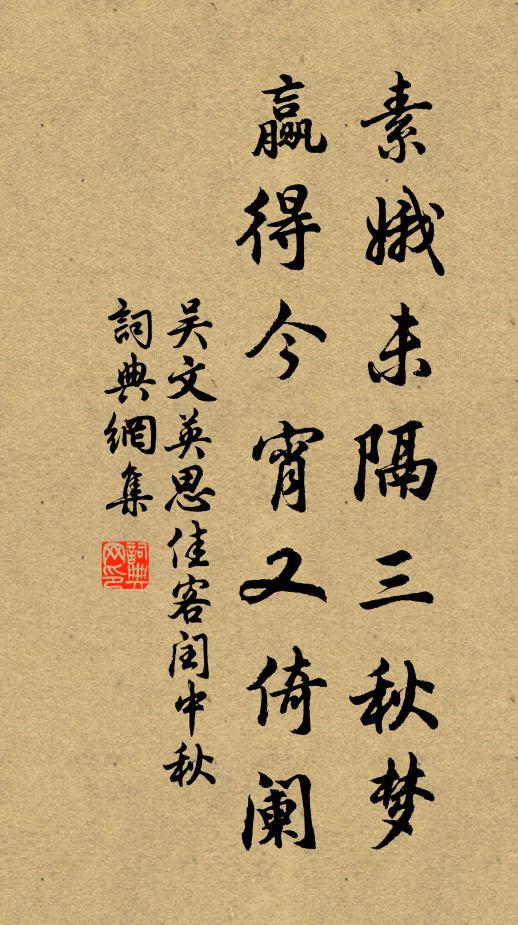 素娥未隔三秋梦
赢得今宵又倚阑
吴文英思佳客闰中秋
詞典網集
詞典网印